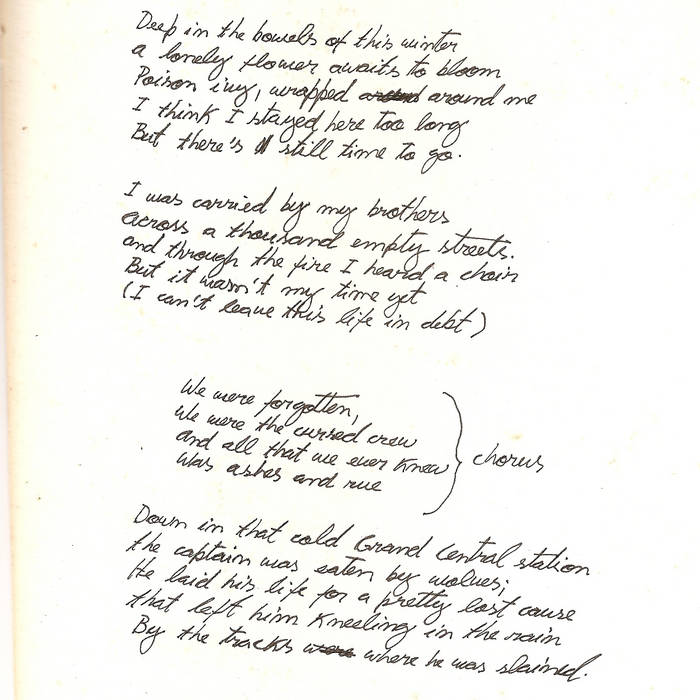 Deep in the bowels of this winter
a lonely flower awaits to bloom
Poison ivy, wrapped around me
I think I stayed here too long
But there's still time to go.
I was carried by my brothers
across a thousand empty streets.
and through the fire I heard a choir
But it wasn't my time yet
(I can't leave this life in debt)
We were forgotten,
We were the cursed crew
and all that we ever knew
Was ashes and rue
chorus
Down in that cold Grand Central station
the captain was eaten by wolves;
He laid his life for a pretty lost cause
that left him kneeling in the rain
By the tracks where he was slained.